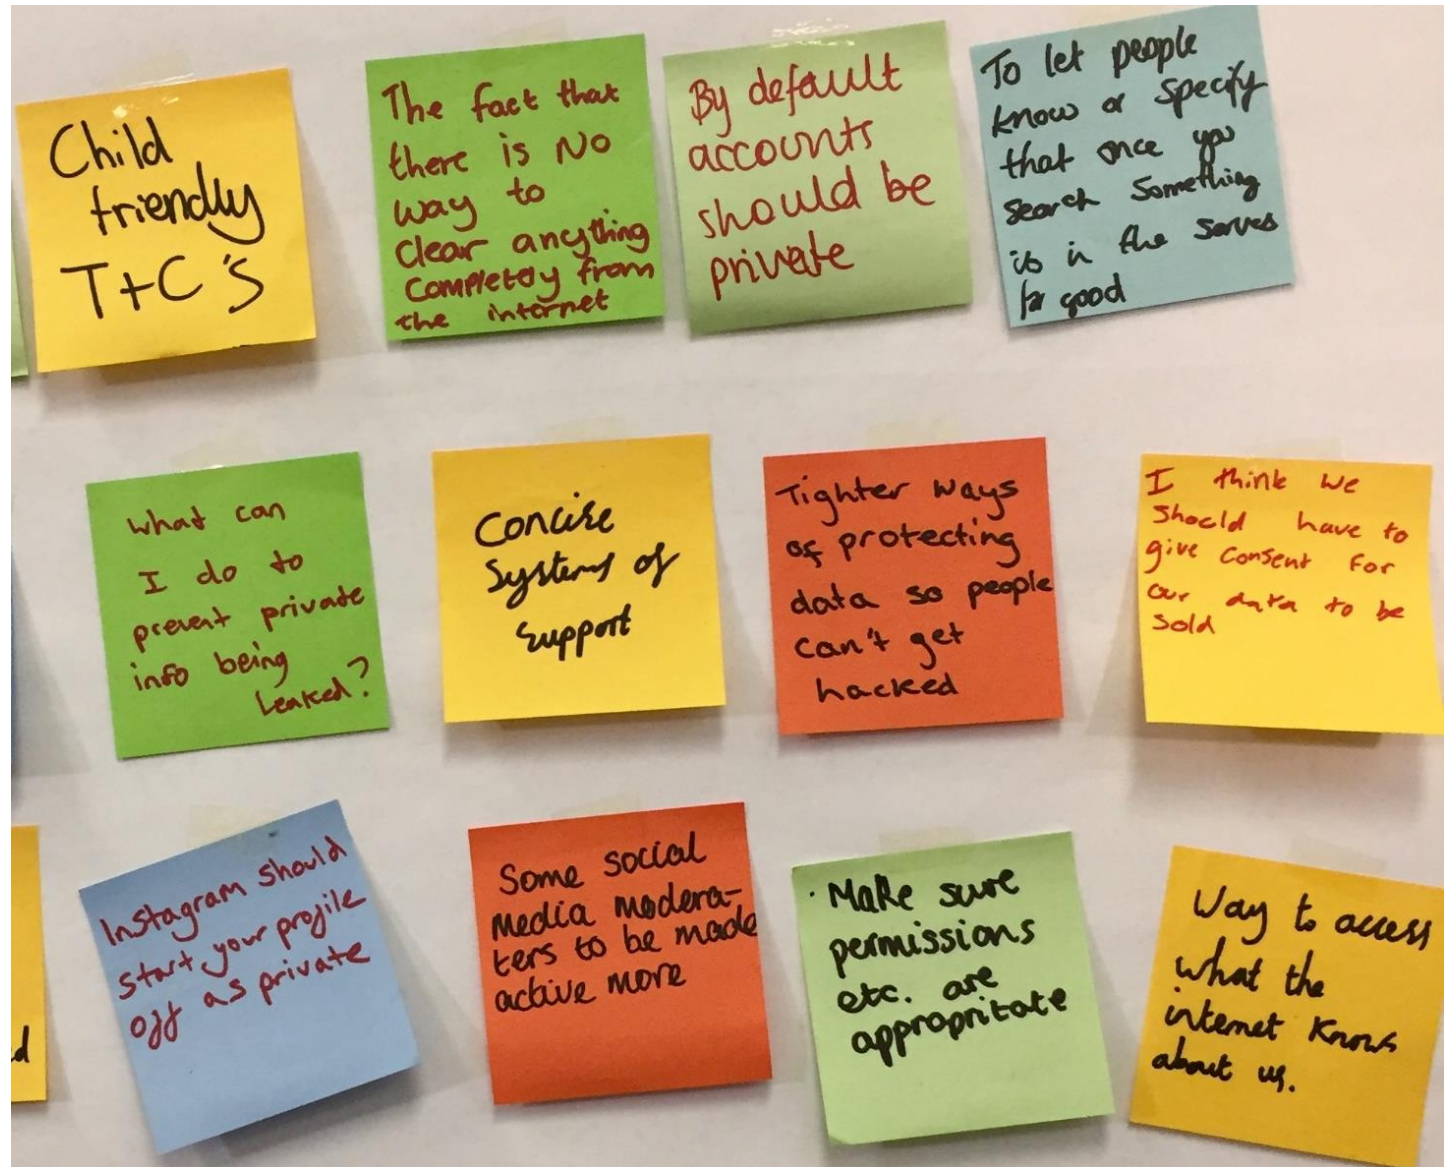 Child
friendly
T+C's
The fact that
there is NO
way to
clear anything
completely from
the internet
By default
accounts
should be
private
To let people
know or specify
that once you
search something
is in the serves
for good
What can
I do to
prevent private
info being
leaked?
Concise
Systems of
support
Tighter ways
of protecting
data so people
can't get
hacked
I think we
should have to
give consent for
our data to be
sold
d
Instagram should
start your profile
off as private
Some social
media modera-
ters to be made
active more
· Make sure
permissions
etc. are
appropritate
Way to access
what the
internet knows
about us.